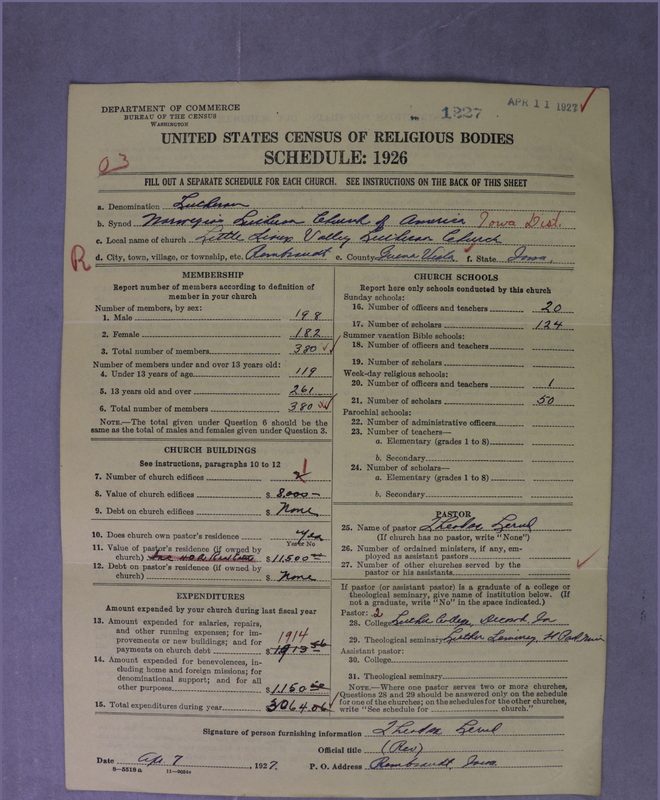 DEPARTMENT OF COMMERCE
BUREAU OF THE CENSUS
WASHINGTON
1927
APR 11 1927
UNITED STATES CENSUS OF RELIGIOUS BODIES
SCHEDULE: 1926
03
FILL OUT A SEPARATE SCHEDULE FOR EACH CHURCH. SEE INSTRUCTIONS ON THE BACK OF THIS SHEET
a. Denomination Lutheran
b. Synod Norwegian Lutheran Church of America Iowa Dist.
c. Local name of church Little Sioux Valley Lutheran Church
R
d. City, town, village, or township, etc. Rembrandt e. County Buena Vista f. State Iowa.
MEMBERSHIP
Report number of members according to definition of
member in your church
Number of members, by sex:
1. Male 198
2. Female 182
3. Total number of members 380
Number of members under and over 13 years old:
4. Under 13 years of age 119
5. 13 years old and over 261
6. Total number of members 380
NOTE.—The total given under Question 6 should be
same as the total of males and females given under Question 3.
CHURCH BUILDINGS
See instructions, paragraphs 10 to 12
7. Number of church edifices 1
8. Value of church edifices $ 8,000—
9. Debt on church edifices $ None
10. Does church own pastor's residence yes
Yes or No
11. Value of pastor's residence (if owned by
church) $ 11,500
12. Debt on pastor's residence (if owned by
church) $ None
EXPENDITURES
Amount expended by your church during last fiscal year
13. Amount expended for salaries, repairs,
and other running expenses; for im-
provements or new buildings; and for
payments on church debt $ 1914
14. Amount expended for benevolences, in-
cluding home and foreign missions; for
denominational support; and for all
other purposes $ 1150.50
15. Total expenditures during year 3064.06
CHURCH SCHOOLS
Report here only schools conducted by this church
Sunday schools:
16. Number of officers and teachers 20
17. Number of scholars 124
Summer vacation Bible schools:
18. Number of officers and teachers
19. Number of scholars
Week-day religious schools:
20. Number of officers and teachers 1
21. Number of scholars 50
Parochial schools:
22. Number of administrative officers
23. Number of teachers—
a. Elementary (grades 1 to 8)
b. Secondary
24. Number of scholars—
a. Elementary (grades 1 to 8)
b. Secondary
PASTOR
25. Name of pastor
(If church has no pastor, write "None")
26. Number of ordained ministers, if any, em-
ployed as assistant pastors
27. Number of other churches served by the
pastor or his assistants
If pastor (or assistant pastor) is a graduate of a college or
theological seminary, give name of institution below. (If
not a graduate, write "No" in the space indicated.)
Pastor: 2
28. College Luther College, Decorah, Ia
29. Theological seminary Luther Seminary, St Paul Minn
Assistant pastor:
30. College
31. Theological seminary
NOTE.—Where one pastor serves two or more churches,
Questions 28 and 29 should be answered only on the schedule
for one of the churches; on the schedules for the other churches,
write "See schedule for church."
Signature of person furnishing information
Official title (Rev)
Date Apr 7, 1927. P. O. Address Rembrandt, Iowa.
8—5518a 11—9034a